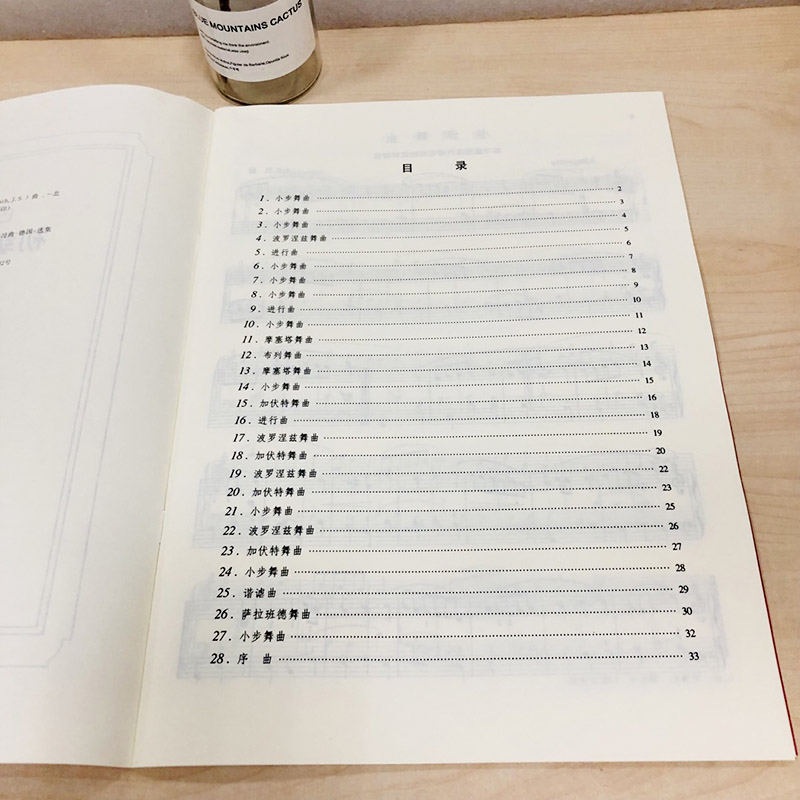 BLUE MOUNTAINS CACTUS
目 录
1. 小步舞曲 2
2. 小步舞曲 3
3. 小步舞曲 4
4. 波罗涅兹舞曲 5
5. 进行曲 6
6. 小步舞曲 7
7. 小步舞曲 8
8. 小步舞曲 9
9. 进行曲 10
10. 小步舞曲 11
11. 摩塞塔舞曲 12
12. 布列舞曲 13
13. 摩塞塔舞曲 14
14. 小步舞曲 15
15. 加伏特舞曲 16
16. 进行曲 18
17. 波罗涅兹舞曲 19
18. 加伏特舞曲 20
19. 波罗涅兹舞曲 22
20. 加伏特舞曲 23
21. 小步舞曲 25
22. 波罗涅兹舞曲 26
23. 加伏特舞曲 27
24. 小步舞曲 28
25. 谐谑曲 29
26. 萨拉班德舞曲 30
27. 小步舞曲 32
28. 序 曲 33